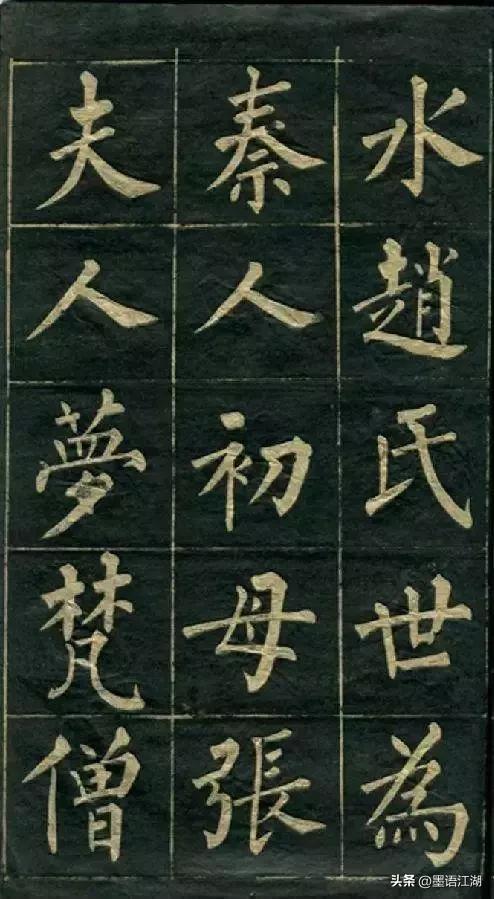 水趙氏世為
秦人初母張
夫人夢梵僧
头条@墨语江湖